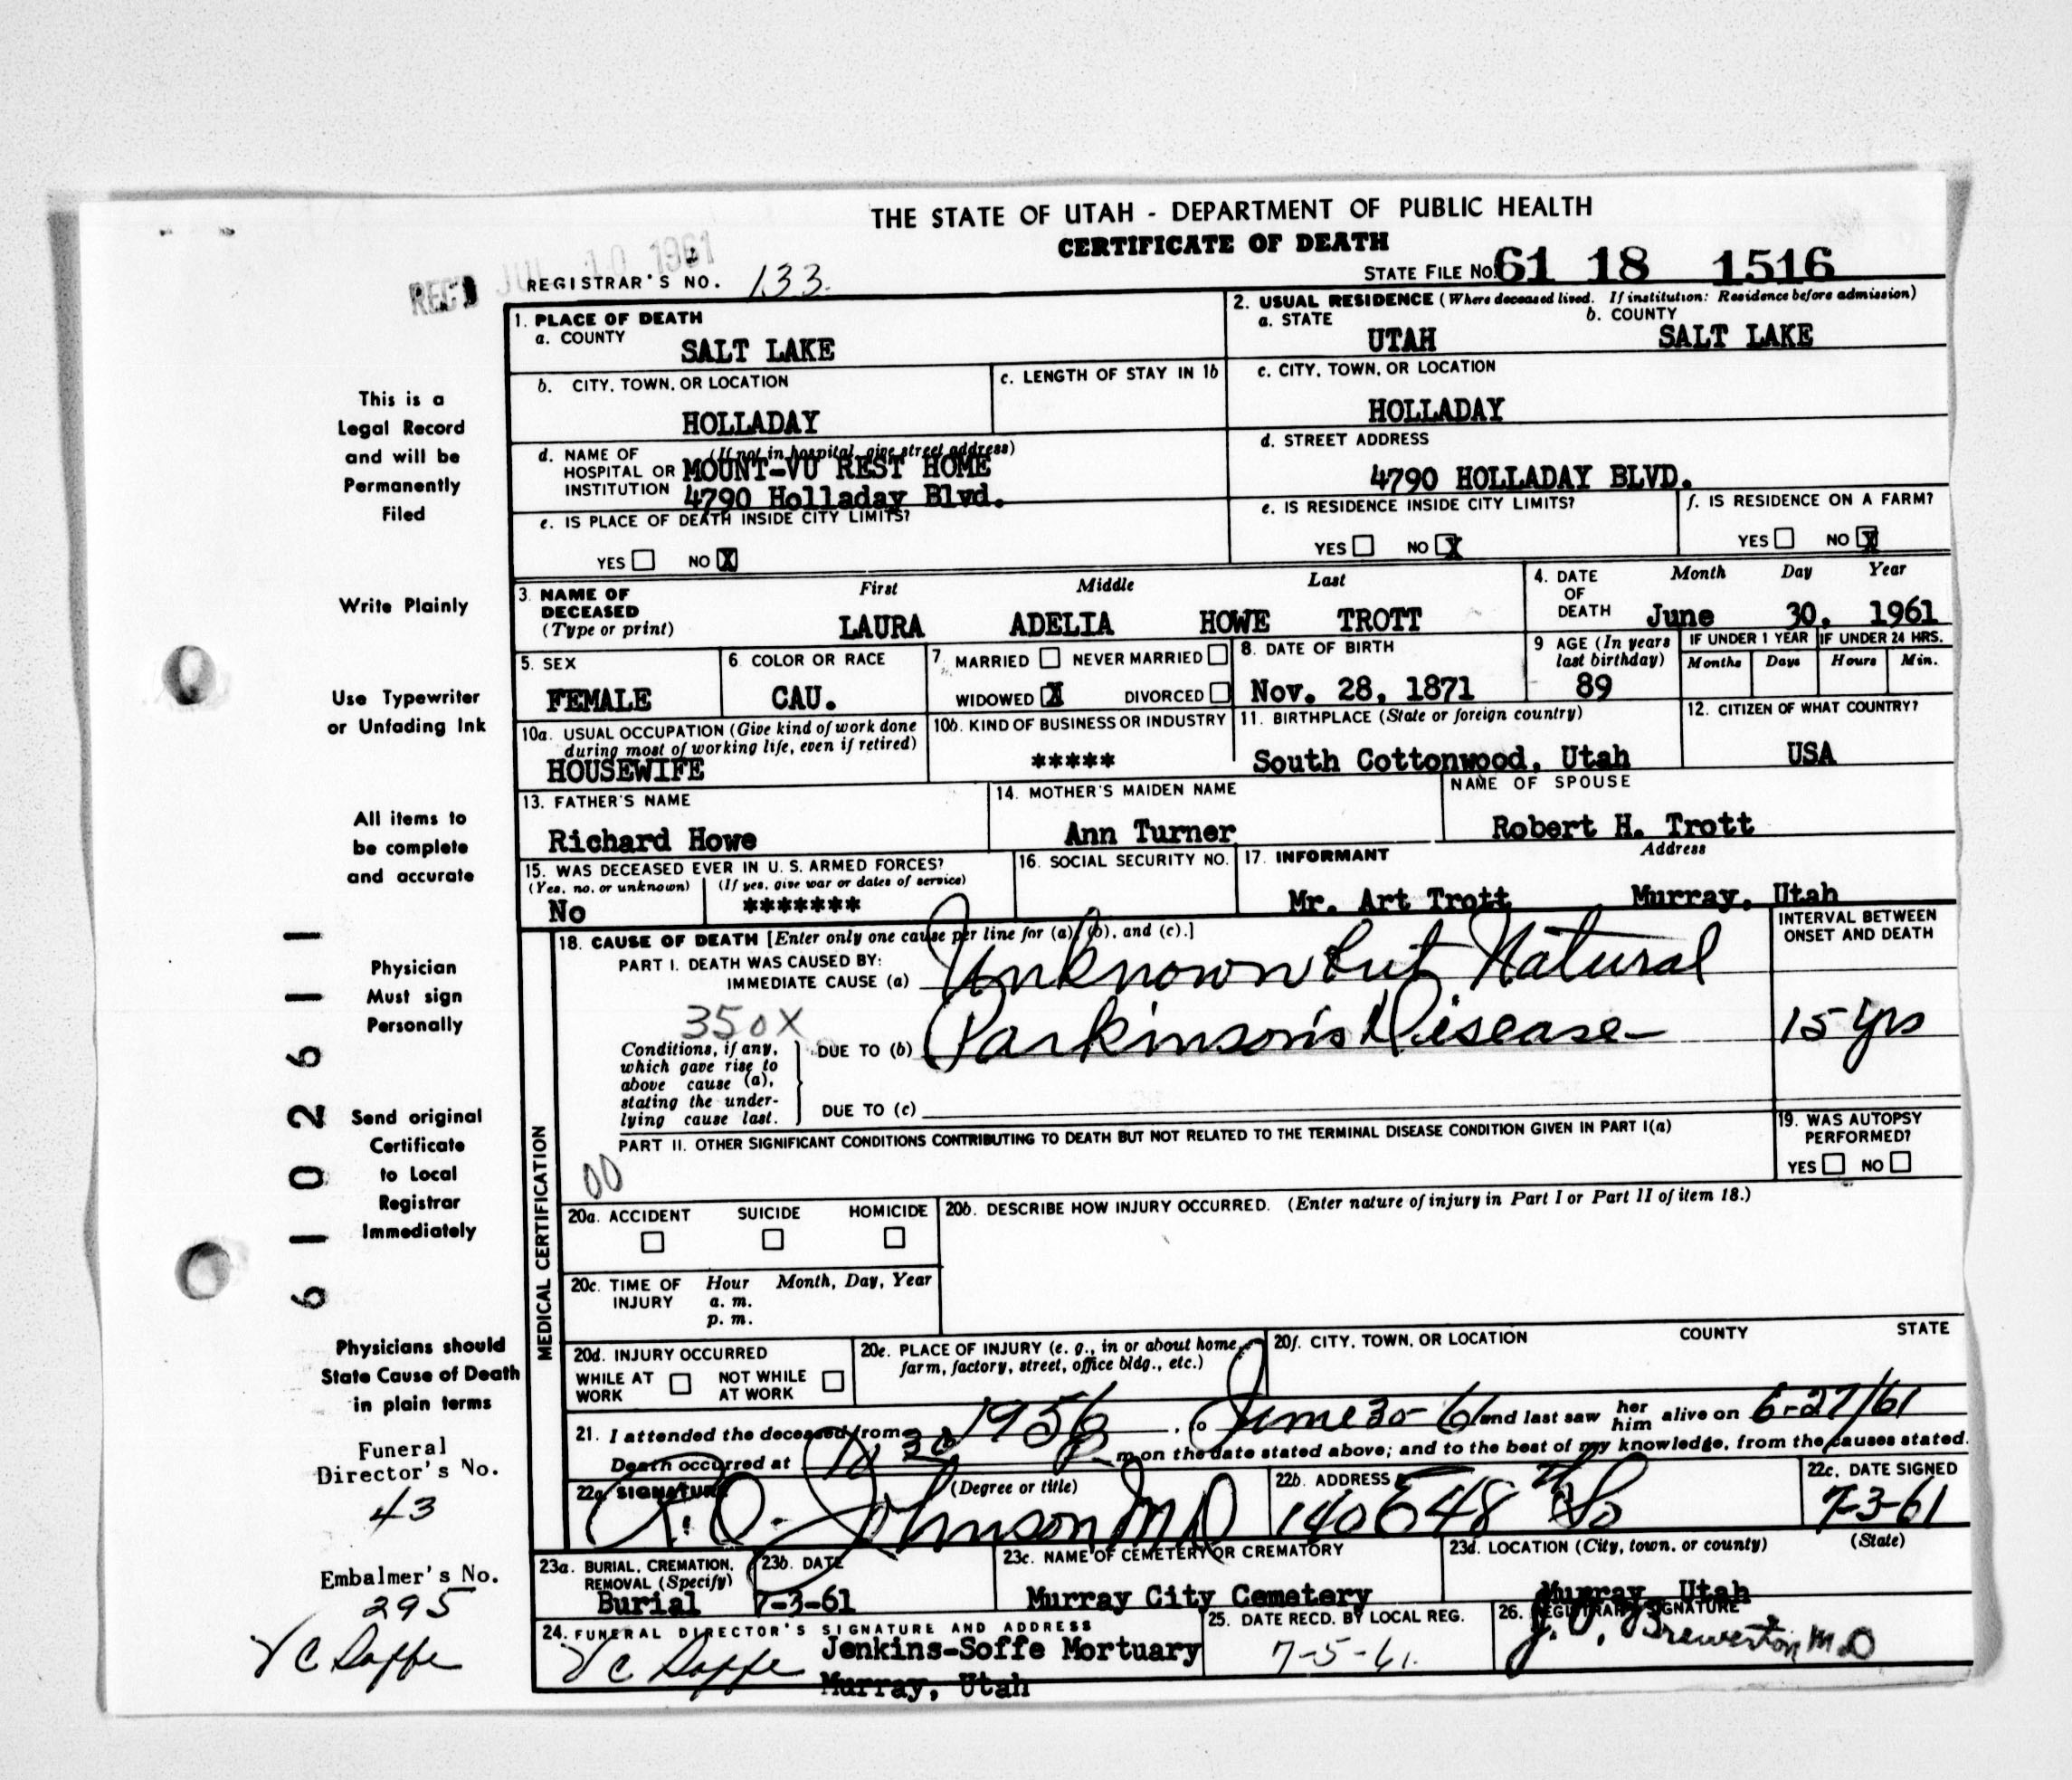 THE STATE OF UTAH - DEPARTMENT OF PUBLIC HEALTH
CERTIFICATE OF DEATH
REC'D JUL 10 1961
REGISTRAR'S NO. 133.
STATE FILE NO. 61 18 1516
1. PLACE OF DEATH
a. COUNTY
SALT LAKE
2. USUAL RESIDENCE (Where deceased lived. If institution: Residence before admission)
a. STATE b. COUNTY
UTAH SALT LAKE
b. CITY, TOWN, OR LOCATION
HOLLADAY
c. LENGTH OF STAY IN 1b
c. CITY, TOWN, OR LOCATION
HOLLADAY
d. NAME OF HOSPITAL OR INSTITUTION (If not in hospital, give street address)
MOUNT-VU REST HOME
4790 Holladay Blvd.
d. STREET ADDRESS
4790 HOLLADAY BLVD.
e. IS PLACE OF DEATH INSIDE CITY LIMITS?
YES NO X
e. IS RESIDENCE INSIDE CITY LIMITS?
YES NO X
f. IS RESIDENCE ON A FARM?
YES NO X
3. NAME OF DECEASED (Type or print)
First Middle Last
LAURA ADELIA HOWE TROTT
4. DATE OF DEATH
Month Day Year
June 30, 1961
5. SEX
FEMALE
6. COLOR OR RACE
CAU.
7. MARRIED NEVER MARRIED
WIDOWED X DIVORCED
8. DATE OF BIRTH
Nov. 28, 1871
9 AGE (In years last birthday)
89
IF UNDER 1 YEAR
Months Days
IF UNDER 24 HRS.
Hours Min.
10a. USUAL OCCUPATION (Give kind of work done during most of working life, even if retired)
HOUSEWIFE
10b. KIND OF BUSINESS OR INDUSTRY
*****
11. BIRTHPLACE (State or foreign country)
South Cottonwood, Utah
12. CITIZEN OF WHAT COUNTRY?
USA
13. FATHER'S NAME
Richard Howe
14. MOTHER'S MAIDEN NAME
Ann Turner
NAME OF SPOUSE
Robert H. Trott
15. WAS DECEASED EVER IN U. S. ARMED FORCES?
(Yes, no, or unknown) (If yes, give war or dates of service)
No *******
16. SOCIAL SECURITY NO.
17. INFORMANT Address
Mr. Art Trott Murray, Utah
MEDICAL CERTIFICATION
18. CAUSE OF DEATH [Enter only one cause per line for (a), (b), and (c).]
INTERVAL BETWEEN ONSET AND DEATH
PART I. DEATH WAS CAUSED BY:
IMMEDIATE CAUSE (a) Unknown but Natural
350X
Conditions, if any, which gave rise to above cause (a), stating the underlying cause last.
DUE TO (b) Parkinson's Disease 15 yrs
DUE TO (c)
PART II. OTHER SIGNIFICANT CONDITIONS CONTRIBUTING TO DEATH BUT NOT RELATED TO THE TERMINAL DISEASE CONDITION GIVEN IN PART I(a)
00
19. WAS AUTOPSY PERFORMED?
YES NO
20a. ACCIDENT SUICIDE HOMICIDE
20b. DESCRIBE HOW INJURY OCCURRED. (Enter nature of injury in Part I or Part II of item 18.)
20c. TIME OF INJURY
Hour Month, Day, Year
a. m.
p. m.
20d. INJURY OCCURRED
WHILE AT WORK NOT WHILE AT WORK
20e. PLACE OF INJURY (e. g., in or about home, farm, factory, street, office bldg., etc.)
20f. CITY, TOWN, OR LOCATION COUNTY STATE
21. I attended the deceased from 1956, to June 30-61 and last saw her him alive on 6-27/61
Death occurred at P m on the date stated above; and to the best of my knowledge, from the causes stated.
22a. SIGNATURE (Degree or title)
Johnson MD
22b. ADDRESS
140 E 48th So
22c. DATE SIGNED
7-3-61
23a. BURIAL, CREMATION, REMOVAL (Specify)
Burial
23b. DATE
7-3-61
23c. NAME OF CEMETERY OR CREMATORY
Murray City Cemetery
23d. LOCATION (City, town, or county) (State)
Murray, Utah
24. FUNERAL DIRECTOR'S SIGNATURE AND ADDRESS
V C Soffe Jenkins-Soffe Mortuary
Murray, Utah
25. DATE RECD. BY LOCAL REG.
7-5-61.
26. REGISTRAR'S SIGNATURE
Brewerton M.D
This is a
Legal Record
and will be
Permanently
Filed
Write Plainly
Use Typewriter
or Unfading Ink
All items to
be complete
and accurate
Physician
Must sign
Personally
Send original
Certificate
to Local
Registrar
Immediately
Physicians should
State Cause of Death
in plain terms
Funeral
Director's No.
43
Embalmer's No.
295
V C Soffe
6102611